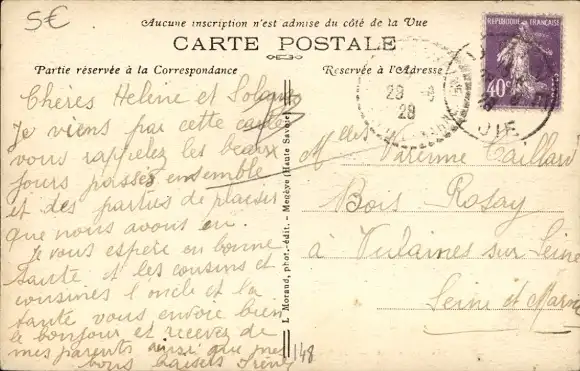 5€
Aucune inscription n'est admise du côté de la Vue
CARTE POSTALE
Partie réservée à la Correspondance
Réservée à l'Adresse
REPUBLIQUE FRANÇAISE
40c
29
28
Chères Helène et Solange
Je viens par cette carte
vous rappelez les beaux
jours passés ensemble
et des parties de plaisir
que nous avons eu.
Je vous espère en bonne
santé et les cousins et
cousines l'oncle et la
tante vous envoie bien
le bonjour et recevez de
mes parents ainsi que mes
bons baisers Irène
L. Moraud, phot.-édit. - Megève (Haute Savoie)
148
Melles Varenne Taillard
Bois Rosay
à Vulaines sur Seine
Seine et Marne